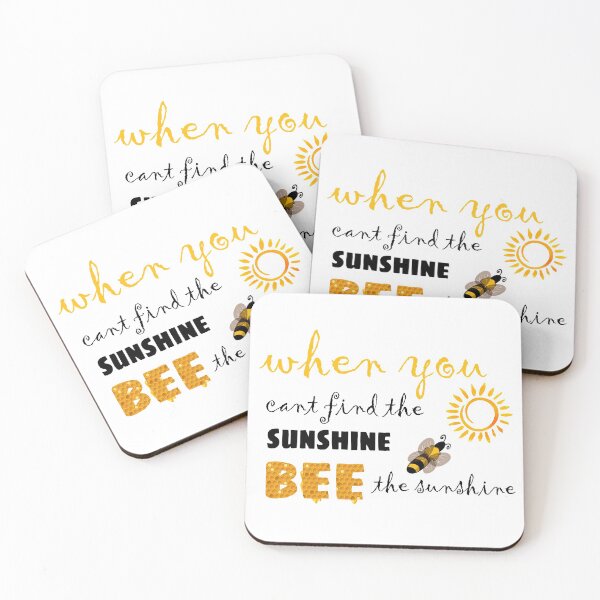 when you
cant find the
when you
cant find the
SUNSHINE
BEE
when you
cant find the
SUNSHINE
BEE the
when you
cant find the
SUNSHINE
BEE the sunshine